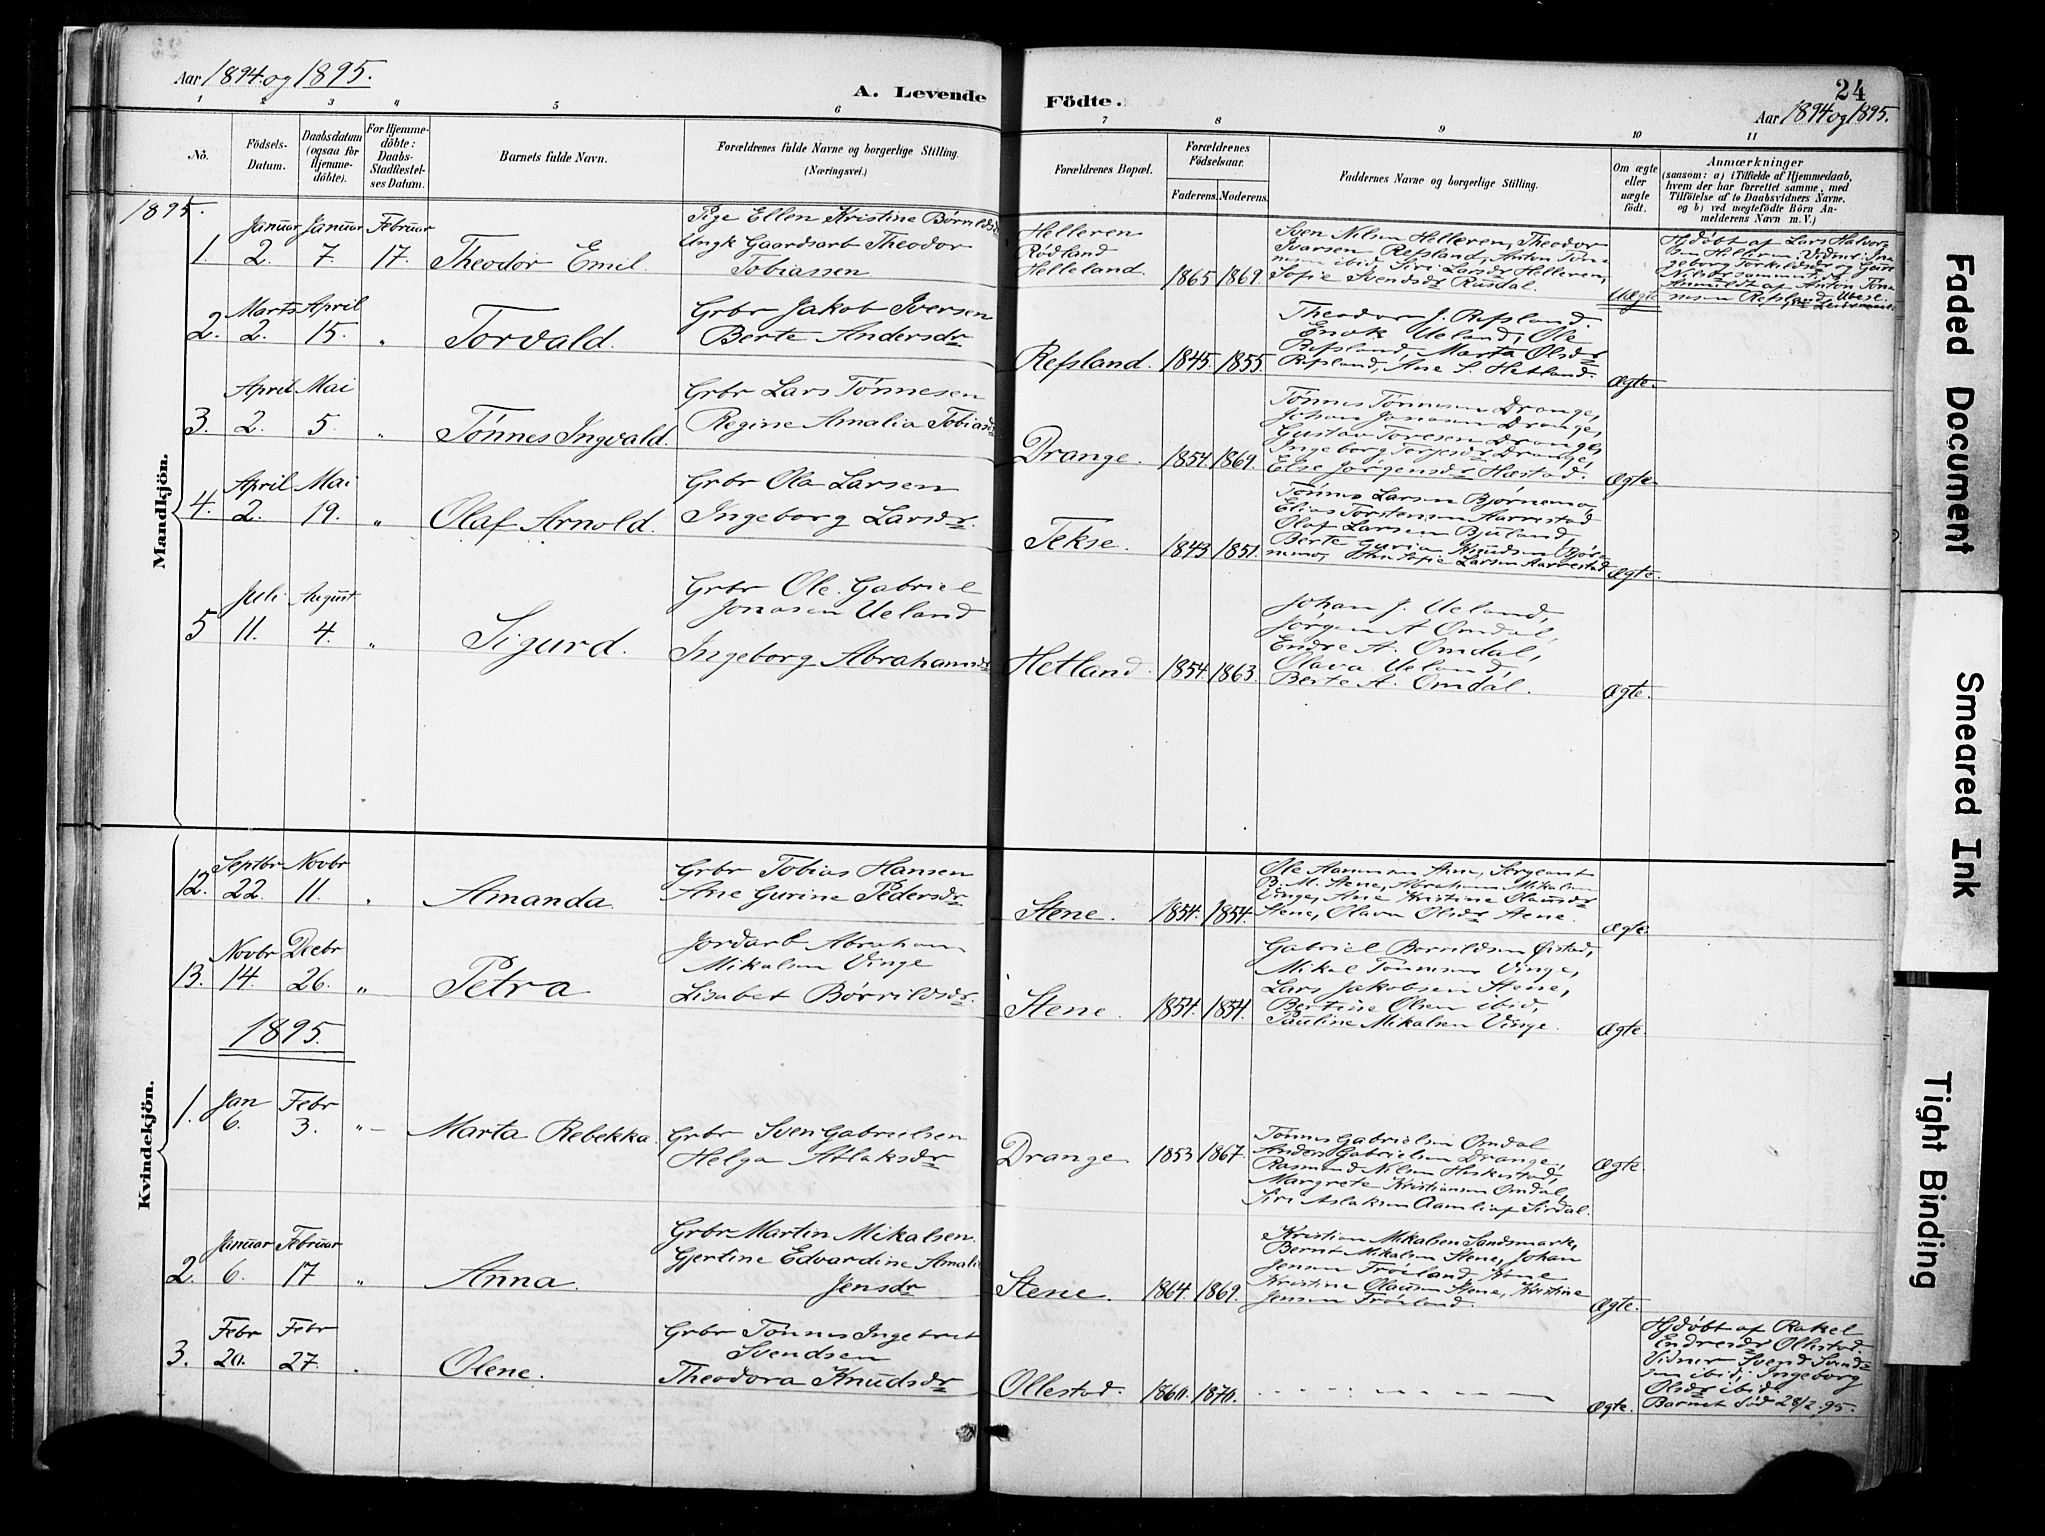 Aar 1894 og 1895.
A. Levende
Födte.
24
Aar 1894 og 1895.
1 2 3 4 5 6 7 8 9 10 11
No.
Födsels-
Datum.
Daabsdatum
(ogsaa for
Hjemme-
döbte).
For Hjemme-
döbte:
Daabs-
Stadfæstel-
ses Datum.
Barnets fulde Navn.
Forældrenes fulde Navne og borgerlige Stilling.
(Næringsvei.)
Forældrenes Bopæl.
Forældrenes
Födselsaar.
Faderens.
Moderens.
Faddernes Navne og borgerlige Stilling.
Om ægte
eller
uægte
födt.
Anmærkninger
(saasom: a) i Tilfælde af Hjemmedaab,
hvem der har forrettet samme, med
Tilföielse af to Daabsvidners Navne.
og b) ved uægtefödte Börn An-
melderens Navn m. V.)
Mandkjön.
1895.
1
Januar
2.
Januar
7.
Februar
17.
Theodor Emil.
Pige Ellen Kristine Børrildsd
Ungk Gaardsarb Theodor
Tobiassen
Helleren
Rødland
Helleland.
1865
1869.
Sven Nilsen Helleren, Theodor
Ivarsen Refsland, Anton Tøn-
nesen ibid, Siri Larsdr Helleren,
Sofie Svendsdr Rusdal.
Uægte
Hjdøbt af Lars Halvor-
sen Helleren, Vidner: In-
geborg Torkildsdr og
Anmeldt af Anton Tøn-
nesen Refsland
2.
Marts
2.
April
15.
"
Torvald.
Grbr Jakob Iversen
Berte Andersdr
Refsland.
1845.
1855.
Theodor J. Refsland.
Enok Ueland, Ole
Refsland, Marta Olsdr
Refsland, Ane S. Hetland.
Ægte.
3.
April
2.
Mai
5.
"
Tønnes Ingvald.
Grbr Lars Tønnesen
Regine Amalia Tobiasd
Drange.
1854.
1869.
Tønnes Tønnesen Drange,
Johan Jonasen Drange,
Gustav Toresen Drange,
Ingeborg Torjesdr Drange,
Else Jørgensdr Hæstad.
Ægte.
4.
April
2.
Mai
19.
"
Olaf Arnold.
Grbr Ola Larsen
Ingeborg Larsdr.
Tekse.
1843.
1851.
Tønnes Larsen Bjørnemo,
Elias Torstensen Aarrestad
Olaf Larsen Bjuland,
Berte Guria Knudsen Bjør-
nemo, Sofie Larsen Aarrestad
Ægte.
5
Juli
11.
August
4.
"
Sigurd.
Grbr Ole Gabriel
Jonasen Ueland
Ingeborg Abrahamsdr
Hetland.
1854.
1863.
Johan J. Ueland,
Jørgen A Omdal,
Endre A. Omdal,
Olava Ueland,
Berte A. Omdal.
Ægte.
Kvindekjön.
12.
Septbr
22.
Novbr
11.
"
Amanda.
Grbr Tobias Hansen
Ane Gurine Pedersdr.
Stene.
1854.
1854.
Sergeant
B. M. Stene, Abraham Mikalsen
Vinge, Ane Kristine Olausdr
Stene, Olava Olsdr Stene.
Ægte.
13.
Novbr
14.
Decbr
26.
"
Petra
Jordarb Abraham
Mikalsen Vinge
Lisabet Børrildsdr.
Stene.
1854.
1854.
Gabriel Børrildsen Øistad,
Mikal Tønnesen Vinge,
Lars Jakobsen Stene,
Bertine Olsen ibid,
Pauline Mikalsen Vinge.
Ægte.
1895.
1.
Jan
6.
Febr
3.
"
Marta Rebekka.
Grbr Sven Gabrielsen
Helga Atlaksdr
Drange.
1853
1867.
Tønnes Gabrielsen Omdal
Anders Gabrielsen Drange,
Rasmus Nilsen Heskestad,
Margrete Kristiansen Omdal,
Siri Aslaksen Aamli af Sirdal.
Ægte.
2.
Januar
6.
Februar
17
"
Anna.
Grbr Martin Mikalsen.
Gjertine Edvardine Amalie
Jensdr
Stene.
1864.
1869.
Kristian Mikalsen Sandsmark,
Bernt Mikalsen Stene, Johan
Jensen Frøiland, Ane
Kristine Olausen Stene, Kristine
Jensen Frøiland.
Ægte.
3.
Febr
20.
Febr
27.
"
Olene.
Grbr Tønnes Ingebret
Svendsen
Theodora Knudsdr
Ollestad.
1860.
1870.
Ægte.
Hjdøbt af Rakel
Endresdr Ollestad.
Vidner Svend Svend-
sen ibid, Ingeborg
Olsdr ibid.
Barnet død 28/2 95.
Faded Document
Smeared Ink
Tight Binding